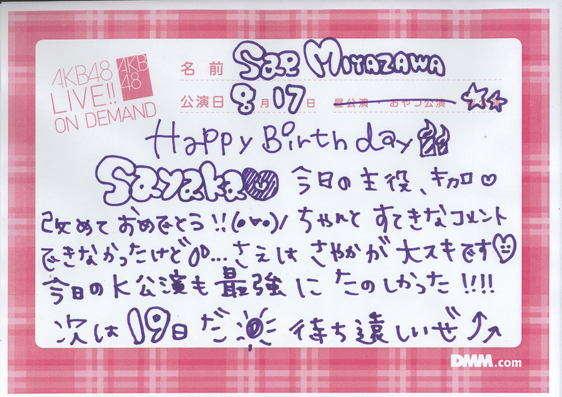 AKB48
LIVE!!
ON DEMAND
AKB
48
名前 Sae MIYAZAWA
公演日 8月17日 昼公演・おやつ公演
Happy Birthday
Sayaka 今日の主役、
改めておめでとう!!(o▽o)/ ちゃんと すてきなコメント
できなかったけど...さえは さやかが 大スキです
今日のK公演も最強に たのしかった!!!!
次は19日だ 待ち遠しいぜ⤴⤴
DMM.com